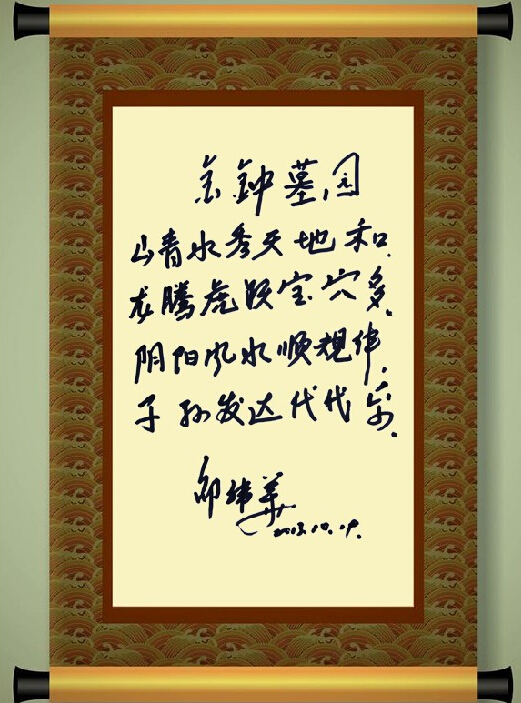 金鐘墓园
山青水秀天地和.
龙腾虎跃宝穴多.
阴阳风水顺规律,
子孙发达代代乐.
邵伟华
2013.10.19.